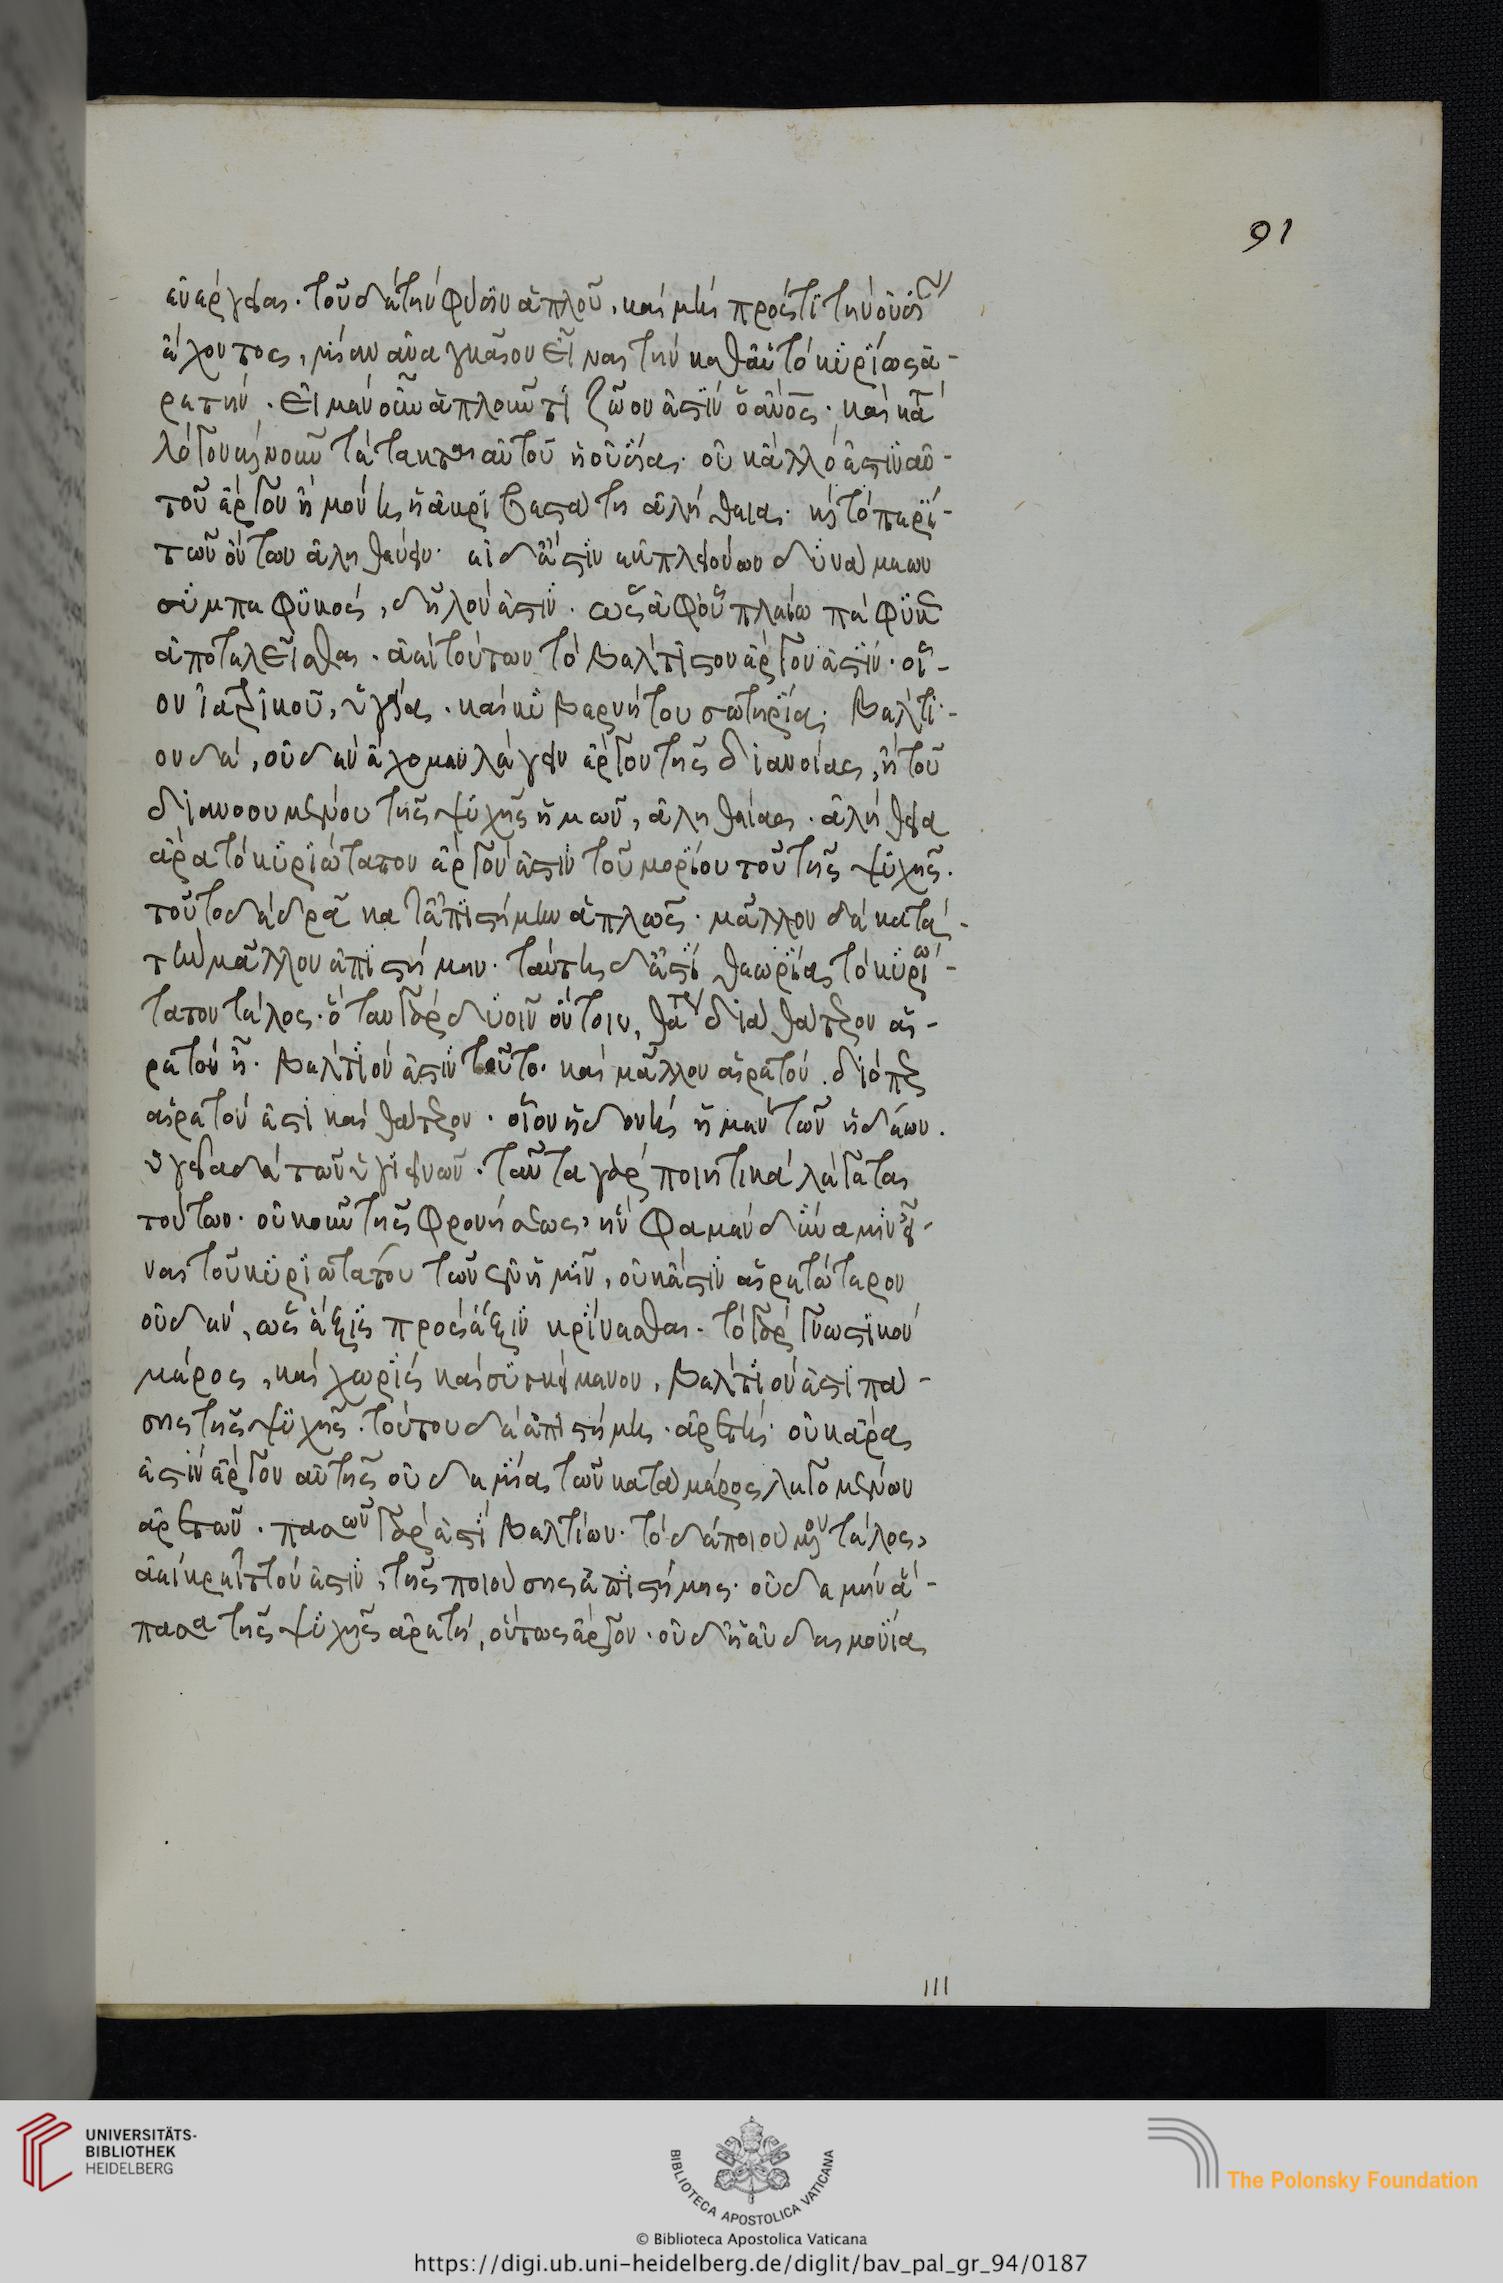 ἐνεργείας. τοῦ δὲ τὴν φύσιν ἁπλοῦ, καὶ μὴ πρός τι τὴν οὐσίαν
ἔχοντος, μίαν ἀναγκαῖον εἶναι τὴν καθ' αὑτὸ κυρίως ἀ-
ρετήν. εἰ μὲν οὖν ἁπλοῦν τι ζῶον ἐστὶν ὁ ἄνος. καὶ κατὰ
λόγον καὶ νοῦν τέτακται αὐτοῦ ἡ οὐσία. οὐκ ἄλλο ἐστὶν αὐ-
τοῦ ἔργον ἢ μόνη ἡ ἀκριβεστάτη ἀλήθεια. καὶ τὸ περὶ
τῶν ὄντων ἀληθεύειν. εἰ δ' ἐστὶν ἐκ πλειόνων δυνάμεων
συμπεφυκός, δῆλον ἐστὶν. ὡς ἀφ' οὗ πλείω πέφυκεν
ἀποτελεῖσθαι. ἀεὶ τούτων τὸ βέλτιστον ἔργον ἐστὶν. οἷ-
ον ἰατρικοῦ, ὑγεία. καὶ κυβερνήτου σωτηρία. βέλτι-
ον δὲ, οὐδὲν ἔχομεν λέγειν ἔργον τῆς διανοίας, ἢ τοῦ
διανοουμένου τῆς ψυχῆς ἡμῶν, ἀληθείας. ἀλήθεια
ἄρα τὸ κυριώτατον ἔργον ἐστὶν τοῦ μορίου τοῦ τῆς ψυχῆς.
τοῦτο δὲ δρᾶ κατ' ἐπιστήμην ἁπλῶς. μᾶλλον δὲ κατὰ
τὴν μᾶλλον ἐπιστήμην. ταύτης δ' ἐστὶ θεωρίας τὸ κυριώ-
τατον τέλος. ὅταν γὰρ δυοῖν ὄντοιν, θάτερον διὰ θάτερον αἱ-
ρετὸν ἦ. βέλτιον ἐστὶν τοῦτο. καὶ μᾶλλον αἱρετὸν. διόπερ
αἱρετὸν ἐστὶ καὶ θάτερον. οἷον ἡδονὴ ἡ μὲν τῶν ἡδέων.
ὑγεία δὲ τῶν ὑγιεινῶν. ταῦτα γὰρ ποιητικὰ λέγεται
τούτων. οὐκοῦν τῆς φρονήσεως, ἣν φαμὲν δύναμιν εἶ-
ναι τοῦ κυριωτάτου τῶν ἐν ἡμῖν, οὐκ ἔστιν αἱρετώτερον
οὐδέν, ὡς ἕξις πρὸς ἕξιν κρίνεσθαι. τὸ γὰρ γνωστικὸν
μέρος, καὶ χωρὶς καὶ συγκείμενον, βέλτιον ἐστὶ πά-
σης τῆς ψυχῆς. τούτου δὲ ἐπιστήμη. ἀρετή. οὐκ ἄρα
ἐστὶν ἔργον αὐτῆς οὐδεμία τῶν κατὰ μέρος λεγομένων
ἀρετῶν. πασῶν γὰρ ἐστὶ βελτίων. τὸ δὲ ποιούμενον τέλος,
ἀεὶ κρεῖττον ἐστὶν, τῆς ποιούσης ἐπιστήμης. οὐδὲ μὴν ἅ-
πασα τῆς ψυχῆς ἀρετή, οὕτως ἔργον. οὐδ' ἡ εὐδαιμονία
91
III
UNIVERSITÄTS-
BIBLIOTHEK
HEIDELBERG
BIBLIOTECA APOSTOLICA VATICANA
The Polonsky Foundation
© Biblioteca Apostolica Vaticana
https://digi.ub.uni-heidelberg.de/diglit/bav_pal_gr_94/0187